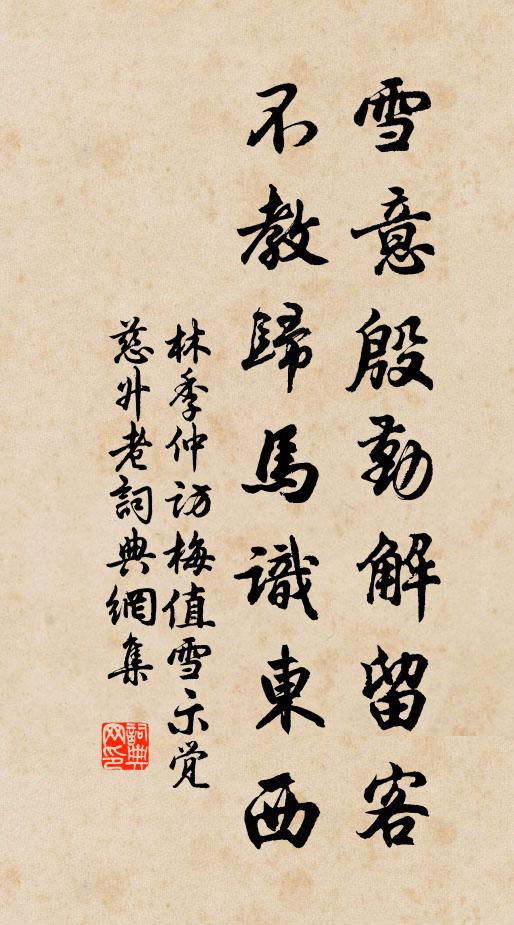 雪意殷勤解留客
不教歸馬識東西
林季仲訪梅值雪示覚
慈升老詞典網集
詞典网印